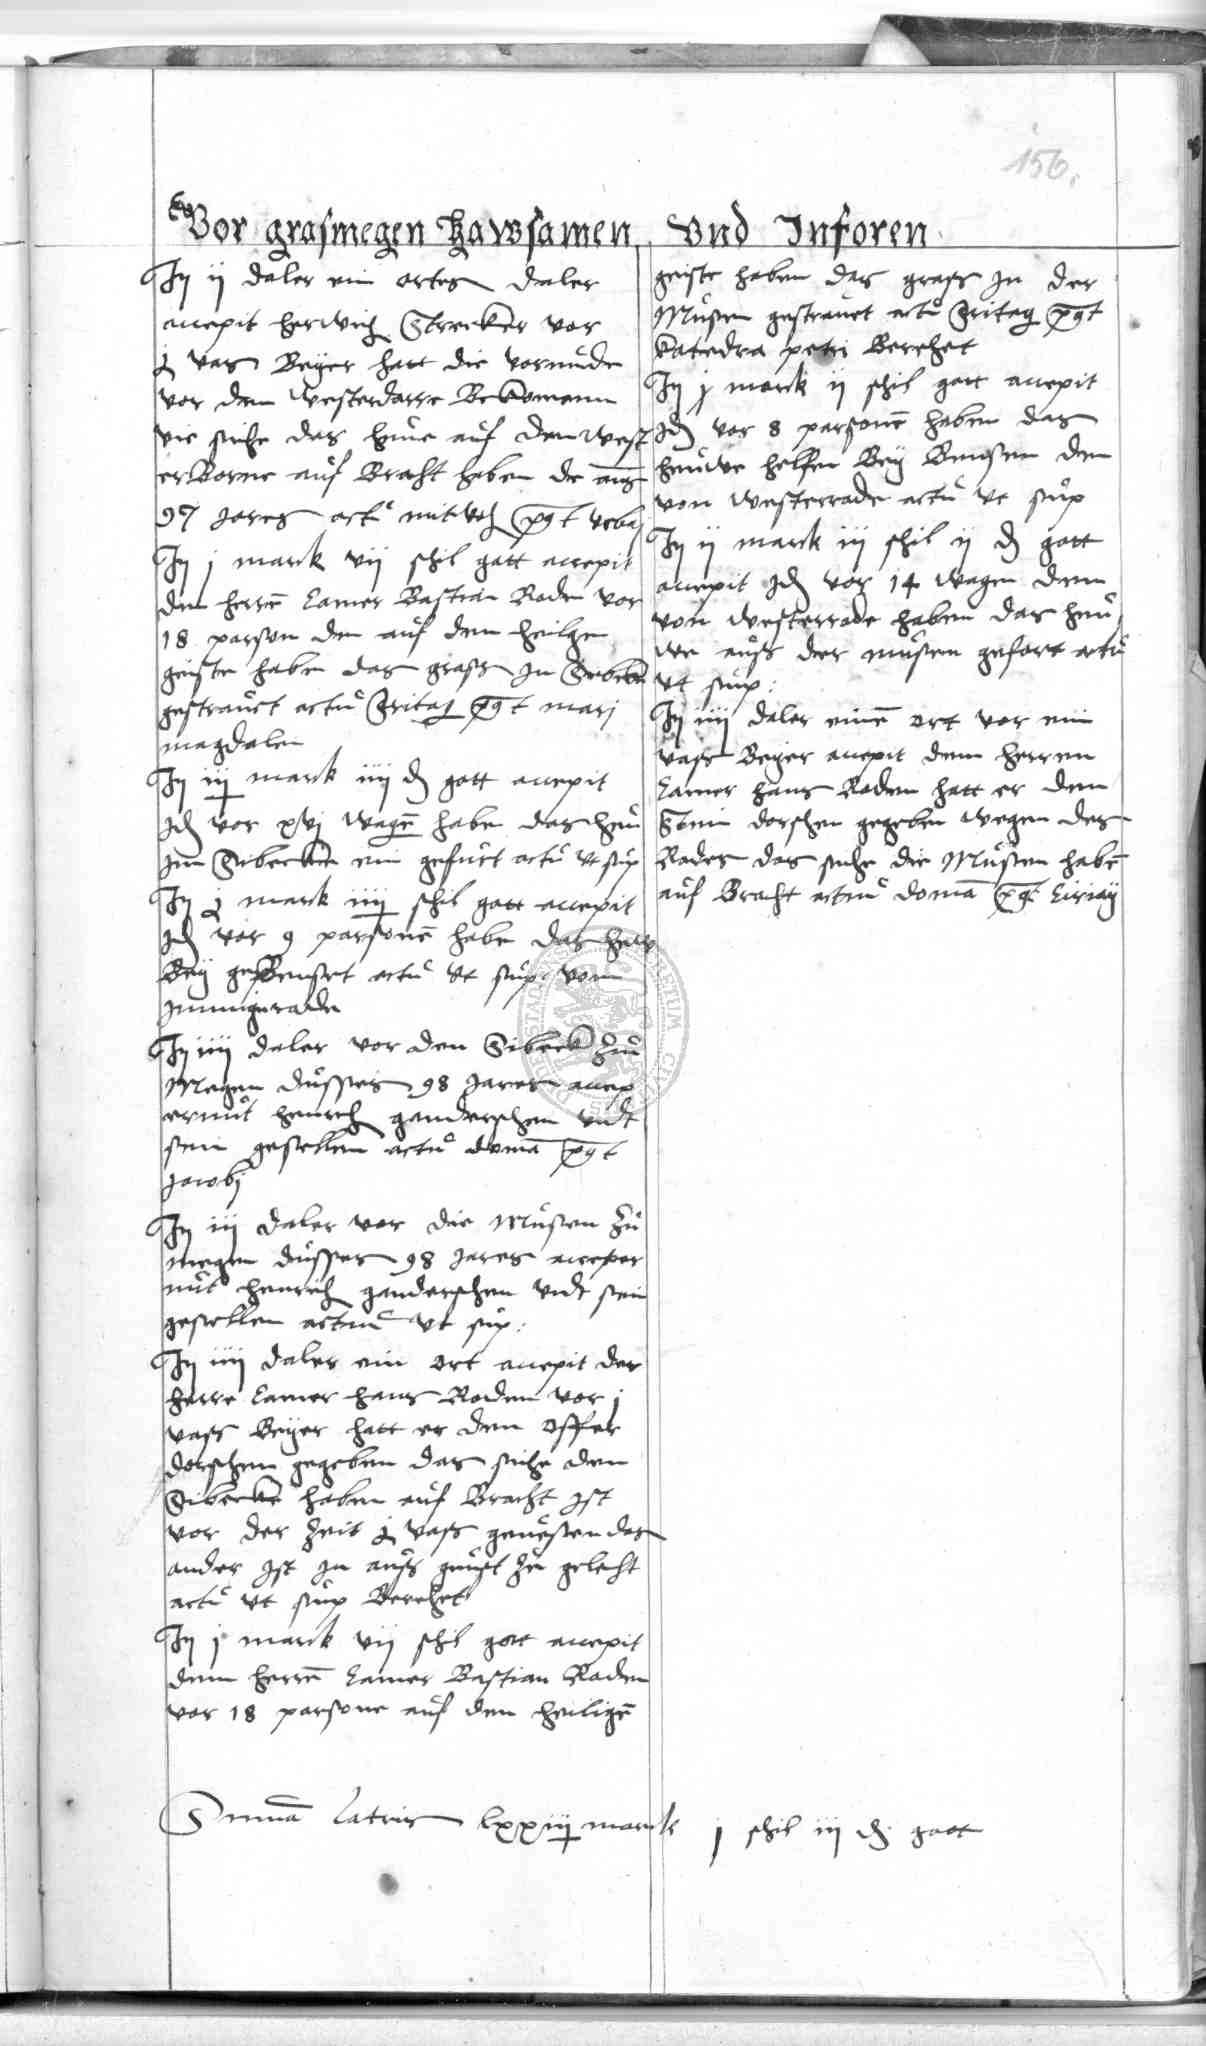 156.
Vor grasmegen hawsamen Vnd Inforen
Ity ij daler ein ortes daler
accepit herwich Strecker vor
j vas Beyer hatt die vormude
vor dem Westerdarre Bekomenn
vie siche das heue auf dem West
erborne auf Bracht haben de anno
97 Jares actu mitwch post vrba
Ity j marck vij schil gott accepit
der herre Camer Bastian Roden vor
18 parson dem auf dem heilge
geiste habe das grass in Sibeke
gestrauet actu Fritag post mari
magdalen
Ity iij marck iiij d gott accepit
Id vor xvj wage habe das heu
im Sibecke ein gefurt actu vt sup
Ity j marck iiij schil gott accepit
Id vor 9 parsone habe das hew
Bey actu vt sup vom
Immigerade
Ity iiij daler vor den Sibeck zu
Megen dusses 98 Jares accep
erunt henrich ganderschen vndt
sein gesellen actu doma post
Jacobj
Ity iij daler vor die Musen zu
megen dusses 98 Jares acceper
unt henrich ganderschen vndt sein
gesellen actum vt sup:
Ity iiij daler ein ort accepit der
herre Camer hans Roden vor j
vass Beyer hatt er den offer
dorschen gegeben das siche den
Sibecke haben auf Bracht ist
vor der Zeit j vass genossen das
ander ist in aufs zu gelecht
actu vt sup Berehet
Ity j marck vij schil gott accepit
dem herre Camer Bastian Roden
vor 18 parsone auf dem heilige
geiste haben das grass in der
Musen gestrauet actu Fritag post
Catedra petri Berehet
Ity j marck ij schil gott accepit
Id vor 8 parsone haben das
heuwe helfen Bey den
von Westerrade actu vt sup
Ity ij marck iij schil ij d gott
accepit Id vor 14 wagen dem
von Westerrade haben das heu
we aus der musen gefort actu
vt sup:
Ity iiij daler eine ort vor ein
vass Beyer accepit dem herren
Camer hans Roden hatt er dem
dorschen gegeben wegen des
Rades das siche die Musen habe
auf Bracht actum doma post Ciriacj
Summa Latris lxxiij marck j schil iij d. gott